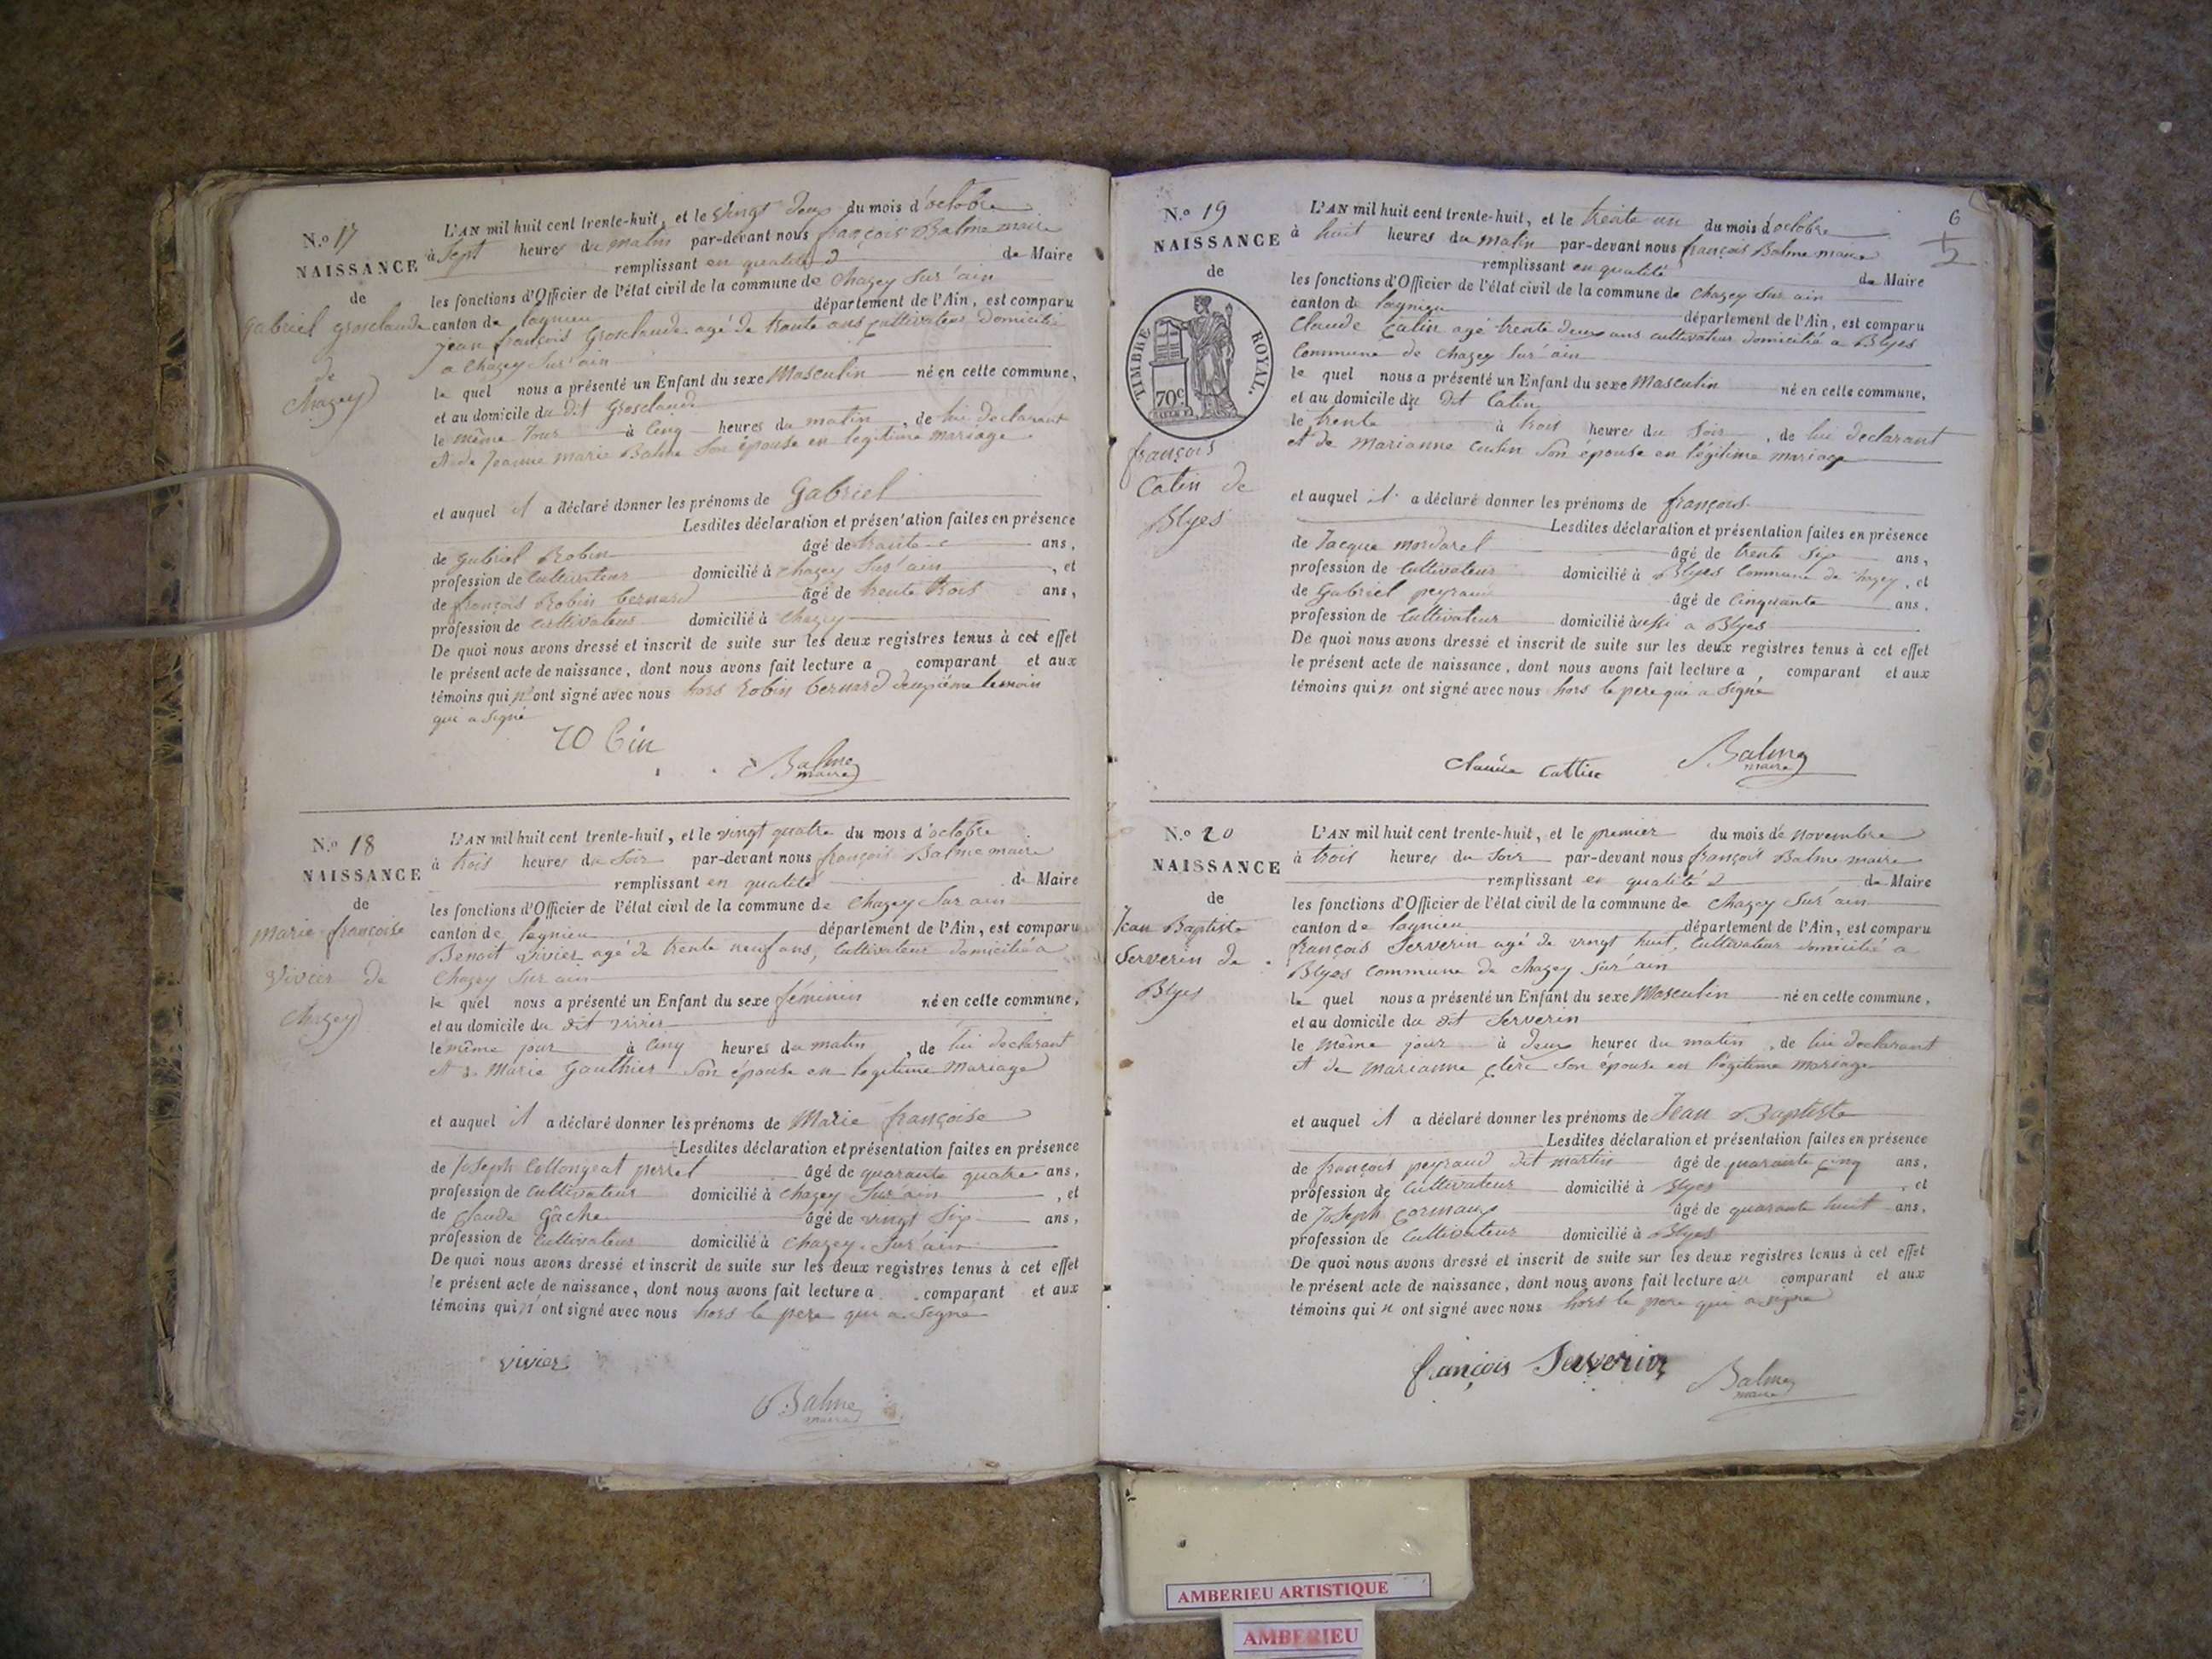 N.º 17
NAISSANCE
de
gabriel grosclaude
de
Chazey
L'AN mil huit cent trente-huit, et le vingt deux du mois d'octobre
à Sept heures du matin par-devant nous françois Balme maire
remplissant en qualité de Maire
les fonctions d'Officier de l'état civil de la commune de Chazey Sur ain
canton de lagnieu département de l'Ain, est comparu
Jean françois Grosclaude agé de trente ans cultivateur domicilié
a Chazey Sur ain
le quel nous a présenté un Enfant du sexe Masculin né en cette commune,
et au domicile du dit Grosclaude
le même Jour à Cinq heures du matin, de lui declarant
et de Jeanne marie Balme Son épouse en legitime mariage
et auquel il a déclaré donner les prénoms de Gabriel
Lesdites déclaration et présentation faites en présence
de gabriel Robin âgé de trente ans,
profession de Cultivateur domicilié à Chazey Sur ain, et
de françois Robin bernard âgé de trente trois ans,
profession de Cultivateur domicilié à Chazey
De quoi nous avons dressé et inscrit de suite sur les deux registres tenus à cet effet
le présent acte de naissance, dont nous avons fait lecture a comparant et aux
témoins qui n'ont signé avec nous hors Robin bernard deuxième temoin
qui a signé
ro bin
Balme
maire
N.º 18
NAISSANCE
de
marie françoise
Vivier de
Chazey
L'AN mil huit cent trente-huit, et le vingt quatre du mois d'octobre
à trois heures du Soir par-devant nous françois Balme maire
remplissant en qualité de Maire
les fonctions d'Officier de l'état civil de la commune de Chazey Sur ain
canton de lagnieu département de l'Ain, est comparu
Benoit Vivier agé de trente neuf ans, Cultivateur domicilié a
Chazey Sur ain
le quel nous a présenté un Enfant du sexe féminin né en cette commune,
et au domicile du dit vivier
le même jour à Cinq heures du matin, de lui declarant
et de Marie Gauthier Son épouse en legitime Mariage
et auquel il a déclaré donner les prénoms de Marie françoise
Lesdites déclaration et présentation faites en présence
de Joseph Collongeat perret âgé de quarante quatre ans,
profession de Cultivateur domicilié à Chazey Sur ain, et
de Claude Gâche âgé de vingt Six ans,
profession de Cultivateur domicilié à Chazey Sur ain
De quoi nous avons dressé et inscrit de suite sur les deux registres tenus à cet effet
le présent acte de naissance, dont nous avons fait lecture a comparant et aux
témoins qui n'ont signé avec nous hors le pere qui a Signé
vivier
Balme
maire
6
N.º 19
NAISSANCE
de
TIMBRE ROYAL.
70c
françois
Catin de
Blyes
L'AN mil huit cent trente-huit, et le trente un du mois d'octobre
à huit heures du matin par-devant nous françois Balme maire
remplissant en qualité de Maire
les fonctions d'Officier de l'état civil de la commune de Chazey Sur ain
canton de lagnieu département de l'Ain, est comparu
Claude Catin agé trente deux ans cultivateur domicilié a Blyes
Commune de Chazey Sur ain
le quel nous a présenté un Enfant du sexe Masculin né en cette commune,
et au domicile du dit Catin
le trente à trois heure du Soir, de lui declarant
et de Marianne Cusin Son épouse en légitime mariage
et auquel il a déclaré donner les prénoms de françois
Lesdites déclaration et présentation faites en présence
de Jacque mordarel âgé de trente six ans,
profession de Cultivateur domicilié à Blyes Commune de Chazey, et
de Gabriel peyraud âgé de Cinquante ans.
profession de Cultivateur domicilié aussi a Blyes
De quoi nous avons dressé et inscrit de suite sur les deux registres tenus à cet effet
le présent acte de naissance, dont nous avons fait lecture a, comparant et aux
témoins qui n ont signé avec nous hors le pere qui a Signé
Claude Cattin
Balme
maire
N.º 20
NAISSANCE
de
Jean Baptiste
Serverin de
Blyes
L'AN mil huit cent trente-huit, et le premier du mois de novembre
à trois heures du Soir par-devant nous françois Balme maire
remplissant en qualité de Maire
les fonctions d'Officier de l'état civil de la commune de Chazey Sur ain
canton de lagnieu département de l'Ain, est comparu
françois Serverin agé de vingt huit, Cultivateur domicilié a
Blyes Commune de Chazey Sur ain
le quel nous a présenté un Enfant du sexe Masculin né en cette commune,
et au domicile du dit Serverin
le même jour à deux heures du matin, de lui declarant
et de Marianne Clerc Son épouse en legitime mariage
et auquel il a déclaré donner les prénoms de Jean Baptiste
Lesdites déclaration et présentation faites en présence
de françois peyraud dit martin âgé de quarante cinq ans,
profession de Cultivateur domicilié à Blyes, et
de Joseph Cormaux âgé de quarante huit ans,
profession de Cultivateur domicilié à Blyes
De quoi nous avons dressé et inscrit de suite sur les deux registres tenus à cet effet
le présent acte de naissance, dont nous avons fait lecture au comparant et aux
témoins qui n ont signé avec nous hors le pere qui a signé
françois Serverin
Balme
maire
AMBERIEU ARTISTIQUE
AMBERIEU